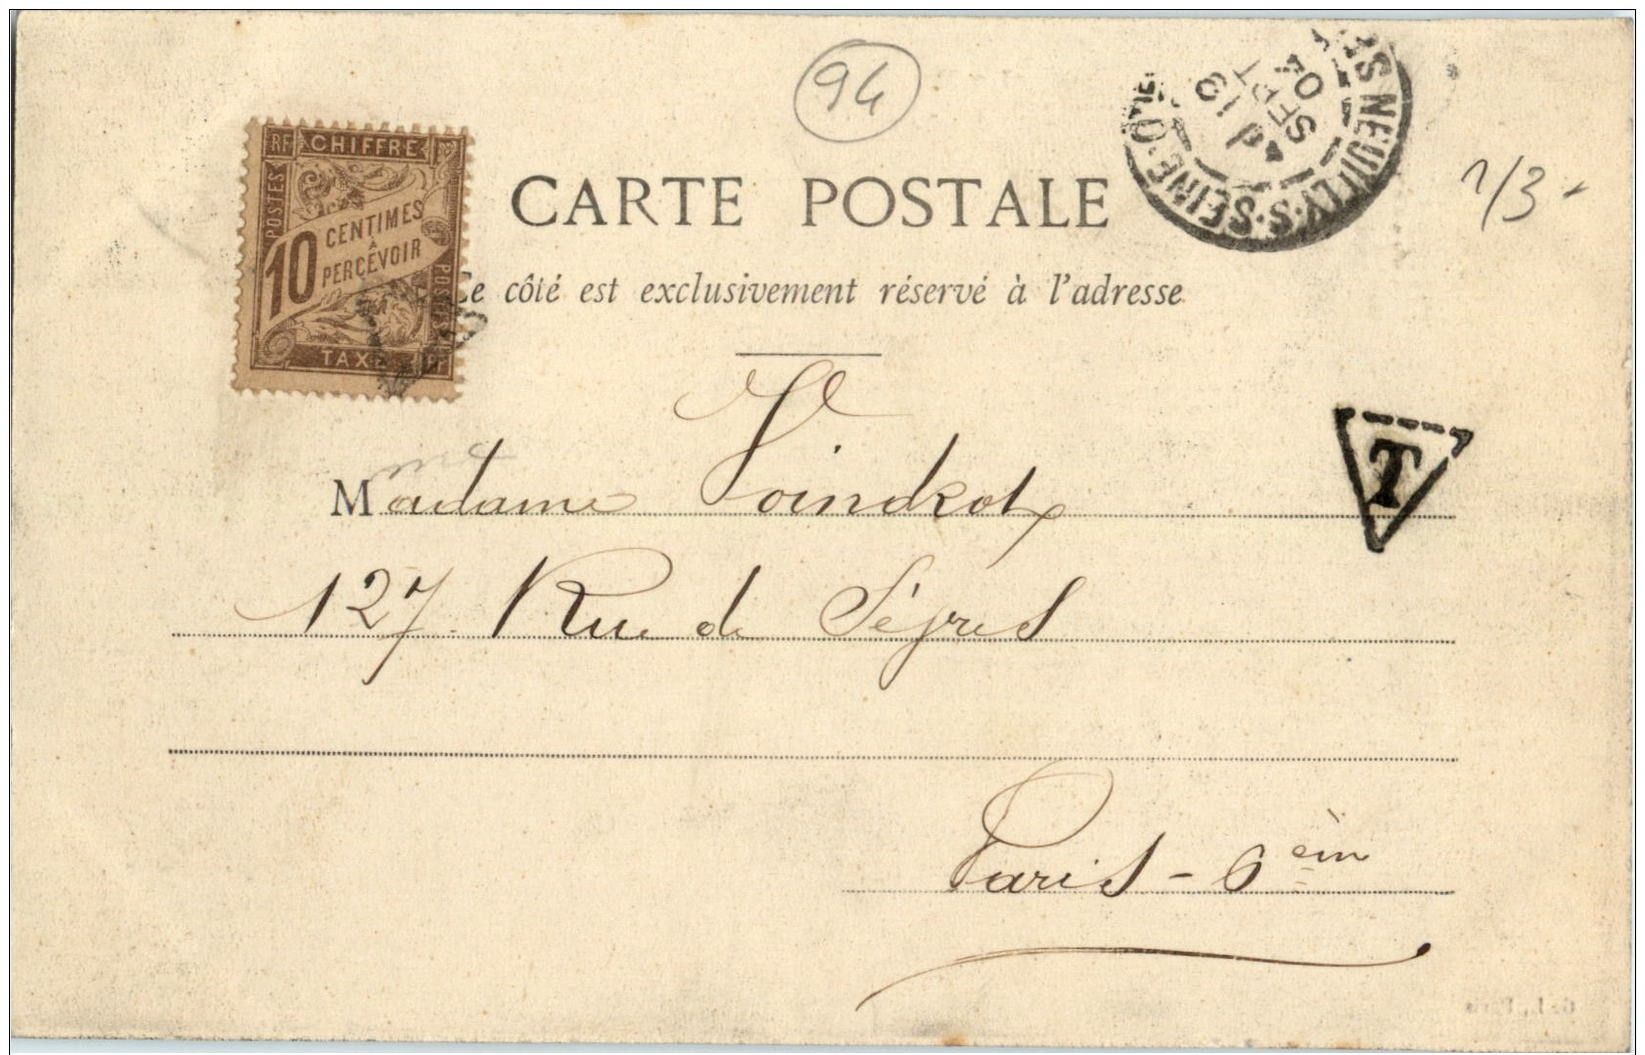 94
RF CHIFFRE
POSTES
10 CENTIMES
À
PERCEVOIR
POSTES
TAXE RF
NEUILLY-S-SEINE
13
SEPT
04
1/3-
CARTE POSTALE
Ce côté est exclusivement réservé à l'adresse
T
Madame Voindrot
127 Rue de Sèvres
Paris - 6 èm